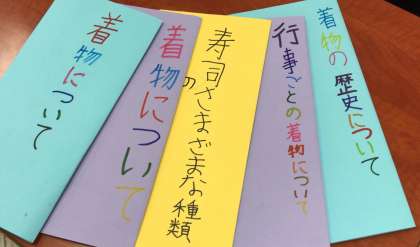 着物について
着物について
寿司のさまざまな種類
行事ごとの着物について
着物の歴史について